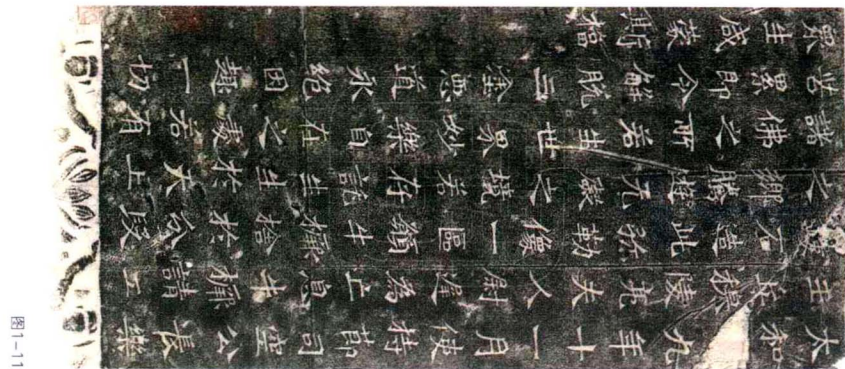 太和九年十一月使持節司空公長樂
王丘穆陵亮夫人尉遲為亡息牛橛請工
鏤石造此彌勒像一區願牛橛捨於分段
之鄉騰遊无礙之境若存託生生於天上
諸佛之所若生世界妙樂自在之處若有
苦累即令解脫三塗惡道永絕因趣一切
眾生咸蒙斯福
图1-11